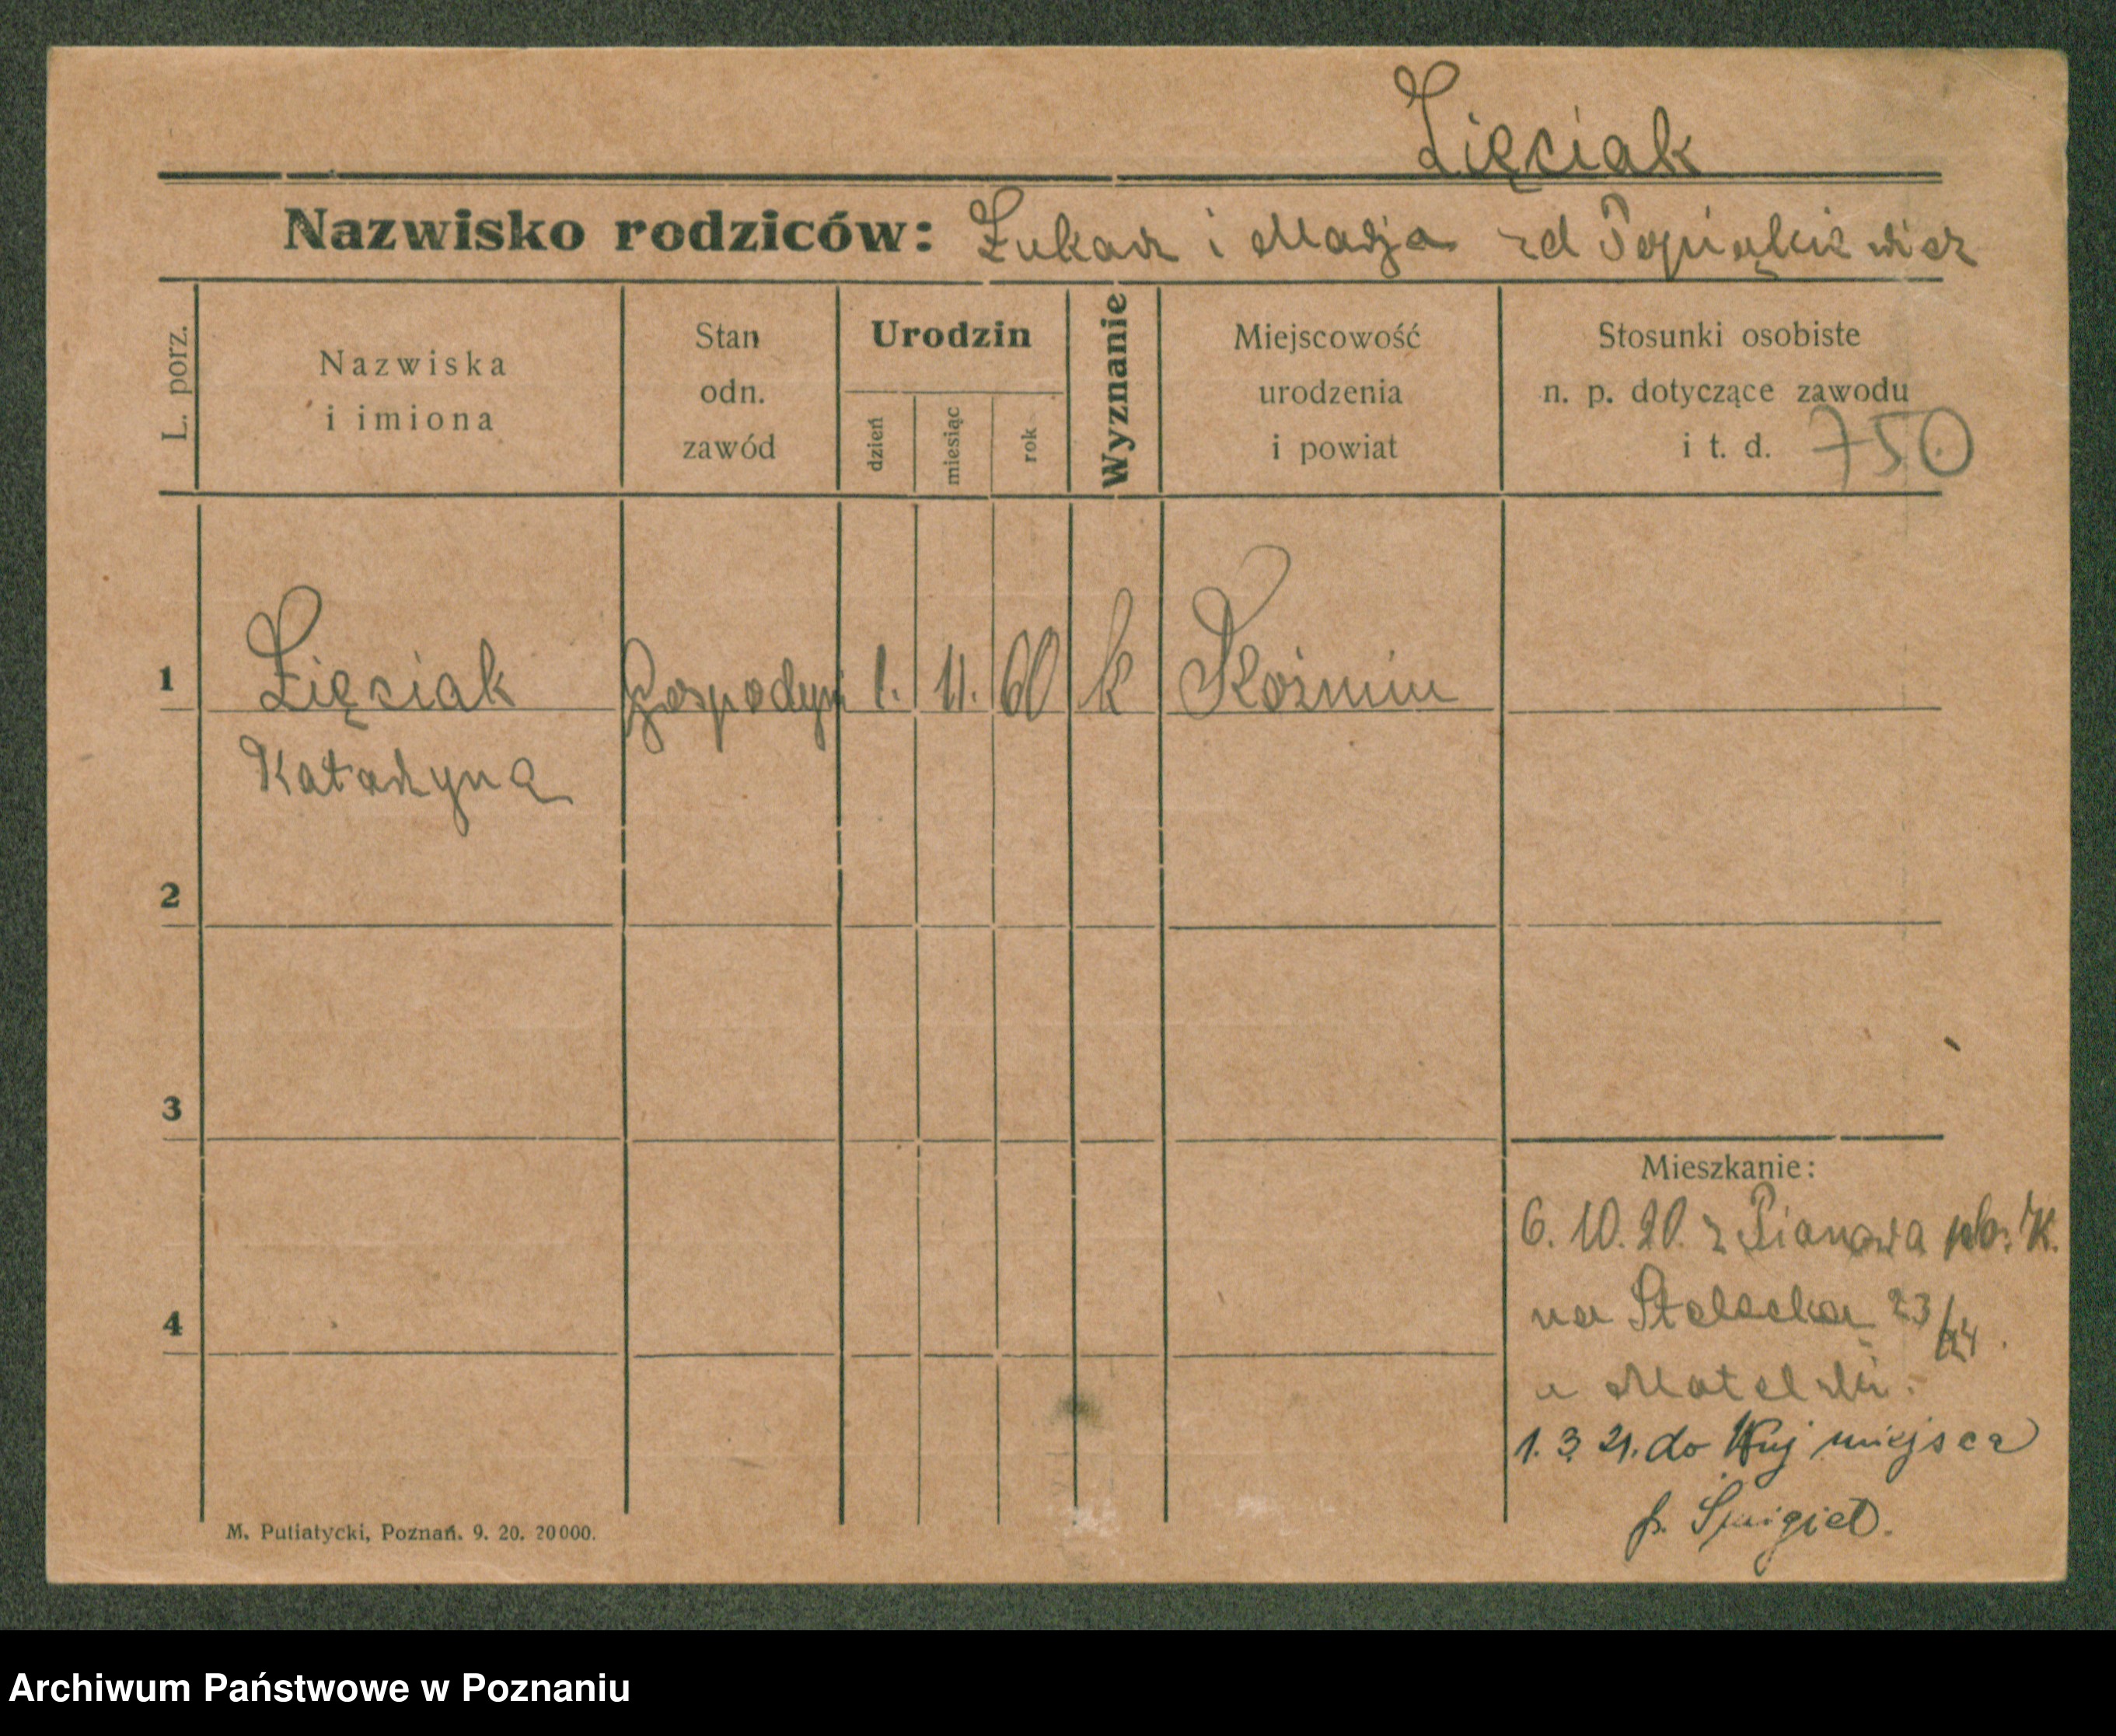 Zięciak
Nazwisko rodziców: Łukasz i Marja zd Popiątkiewicz
L. porz.
Nazwiska
i imiona
Stan
odn.
zawód
Urodzin
dzień
miesiąc
rok
Wyznanie
Miejscowość
urodzenia
i powiat
Stosunki osobiste
n. p. dotyczące zawodu
i t. d. 750
1 Zięciak Gospodyni 1. 11. 60 k Koźmin
Katarzyna
2
3
Mieszkanie:
6. 10. 20. z Pianowa K.
4
na 23/24.
u
1. 3. 21. do miejsca
p. Śmigiel.
M. Putiatycki, Poznań. 9. 20. 20000.
Archiwum Państwowe w Poznaniu